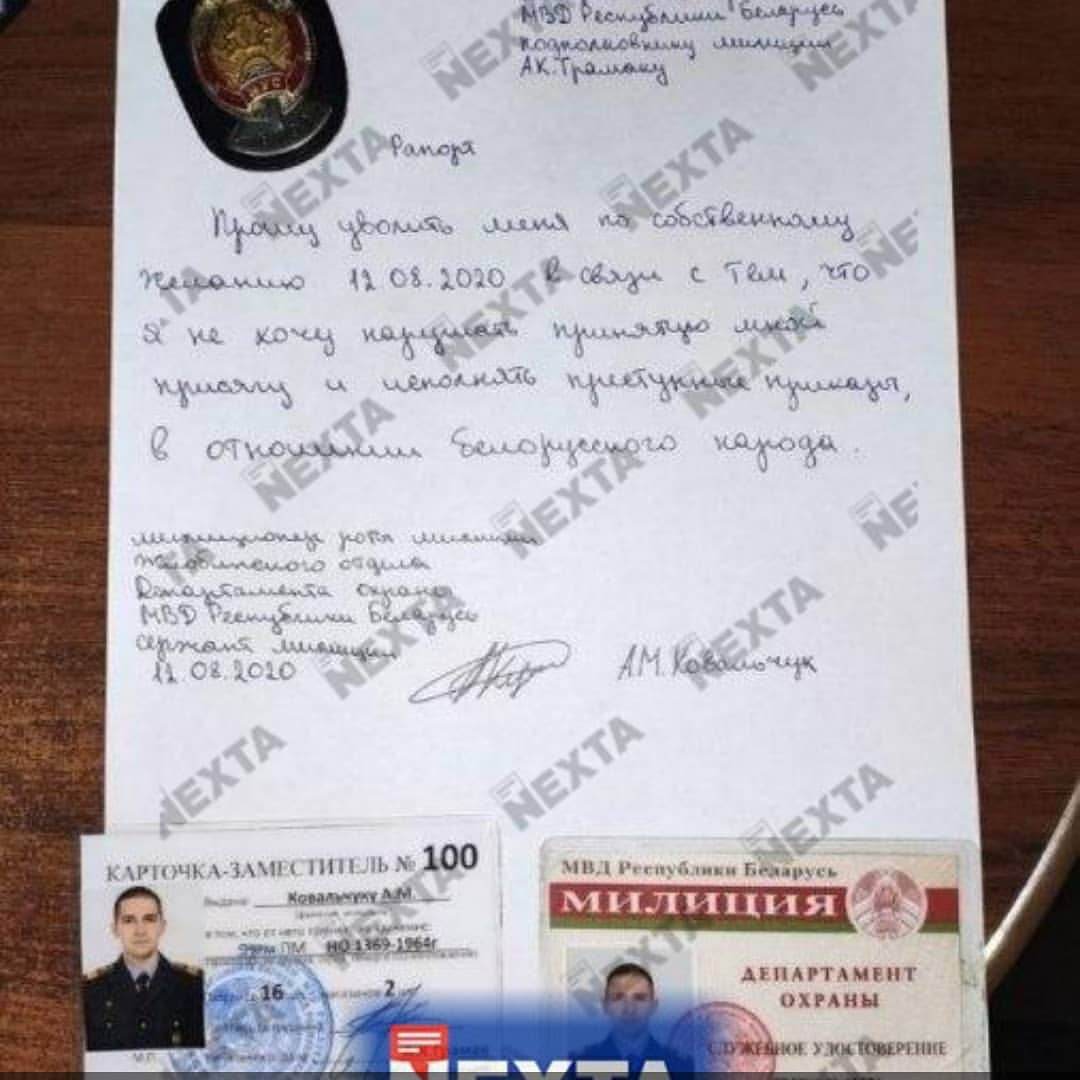 МВД Республики Беларусь
подполковнику милиции
А.К.Трамаку
Рапорт
Прошу уволить меня по собственному
желанию 12.08.2020 в связи с тем, что
я не хочу нарушать принятую мной
присягу и исполнять преступные приказы,
в отношении Белорусского народа.
милиционер роты милиции
Жлобинского отдела
Департамента охраны
МВД Республики Беларусь
сержант милиции
12.08.2020
А.М.Ковальчук
КАРТОЧКА-ЗАМЕСТИТЕЛЬ № 100
Выдана Ковальчуку А.М.
в том, что от него принято на хранение:
ПМ НО 1369-1964г
16 2
М.П.
МВД Республики Беларусь
МИЛИЦИЯ
ДЕПАРТАМЕНТ
ОХРАНЫ
СЛУЖЕБНОЕ УДОСТОВЕРЕНИЕ
NEXTA